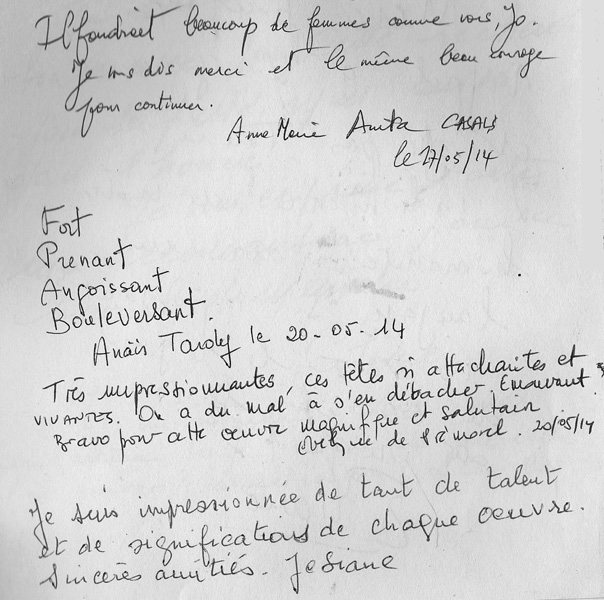 Il faudrait beaucoup de femmes comme vous, Jo.
Je vous dis merci et le même beau courage
pour continuer.
Anne Marie Anita CASALS
le 17/05/14
Fort
Prenant
Angoissant
Bouleversant.
Anaïs le 20-05-14
Très impressionnantes, ces têtes si attachantes et
VIVANTES. On a du mal à s'en détacher. Emouvant.
Bravo pour cette oeuvre magnifique et salutaire
de 20/05/14
Je suis impressionnée de tant de talent
et de significations de chaque oeuvre.
Sincères amitiés. Josiane